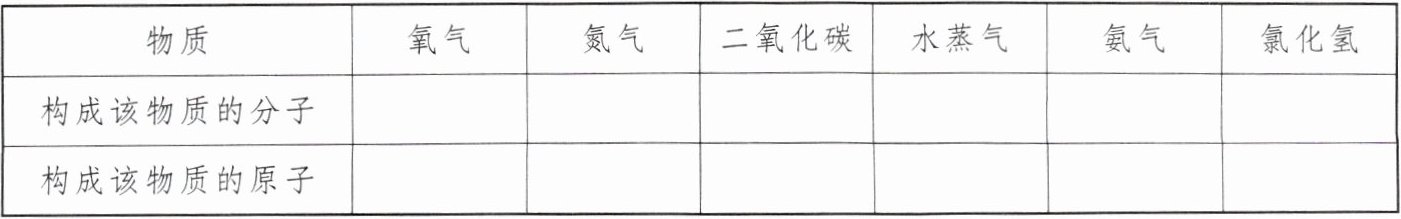 物质 氧气 氮气 二氧化碳 水蒸气 氨气 氯化氢
构成该物质的分子
构成该物质的原子